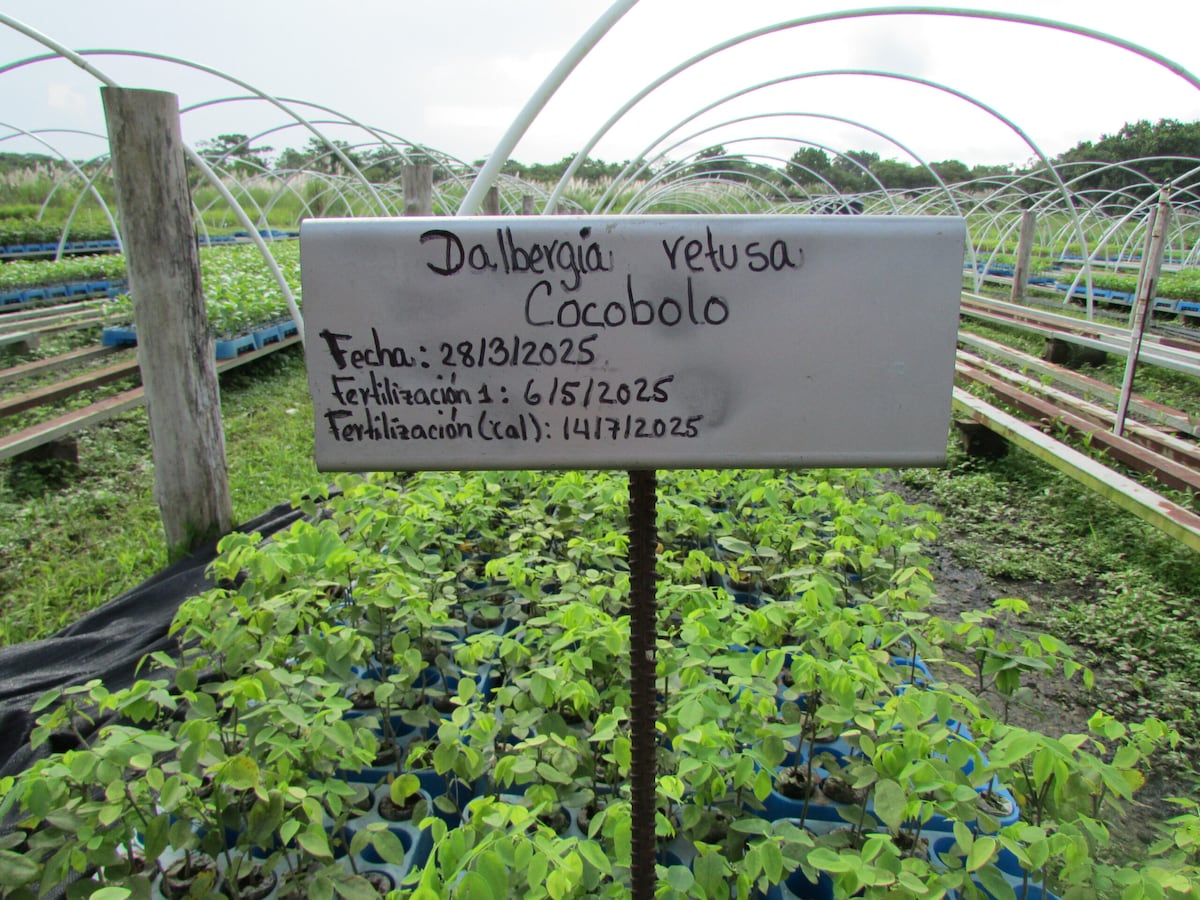 Dalbergia retusa
Cocobolo
Fecha: 28/3/2025
Fertilización 1: 6/5/2025
Fertilización (cal): 14/7/2025